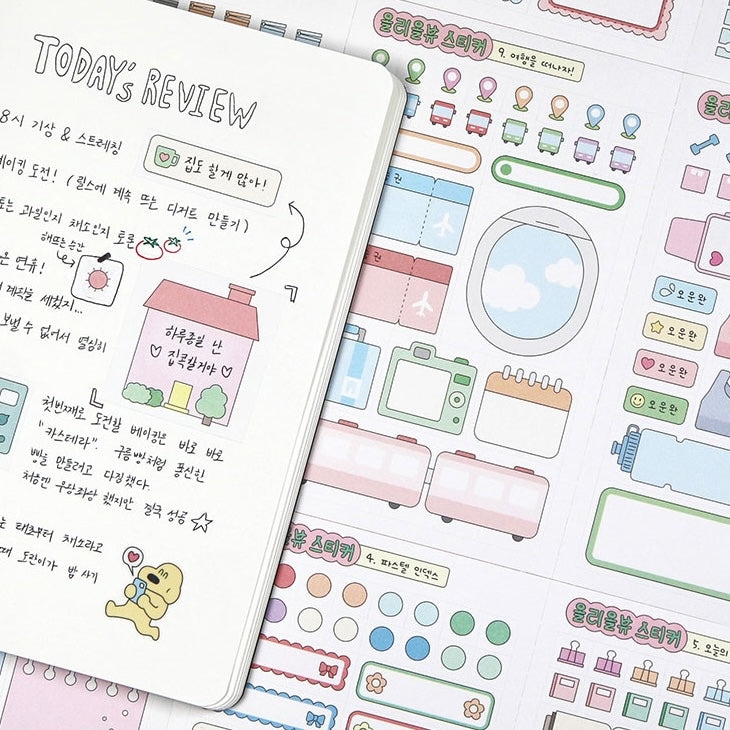 TODAY's REVIEW
8시 기상 & 스트레칭
집도 할게 많아!
베이킹 도전! (릴스에 계속 뜨는 디저트 만들기)
토는 과일인지 채소인지 토론
해뜨는 순간
은 연휴!
계획을 세웠지...
보낼 수 없어서 열심히
하루종일 난
집콕할거야
첫번째로 도전할 베이킹은 바로 바로
"카스테라". 구름빵처럼 퐁신한
빵을 만들려고 다짐했다.
처음엔 우왕좌왕 했지만 결국 성공
는 태초부터 채소라고
도란이가 밥 사기
율리율뷰 스티커
9. 여행을 떠나자!
권
권
율리
오운완
오운완
오운완
오운완
뷰 스티커
4. 파스텔 인덱스
율리율뷰 스티커
5. 오늘의